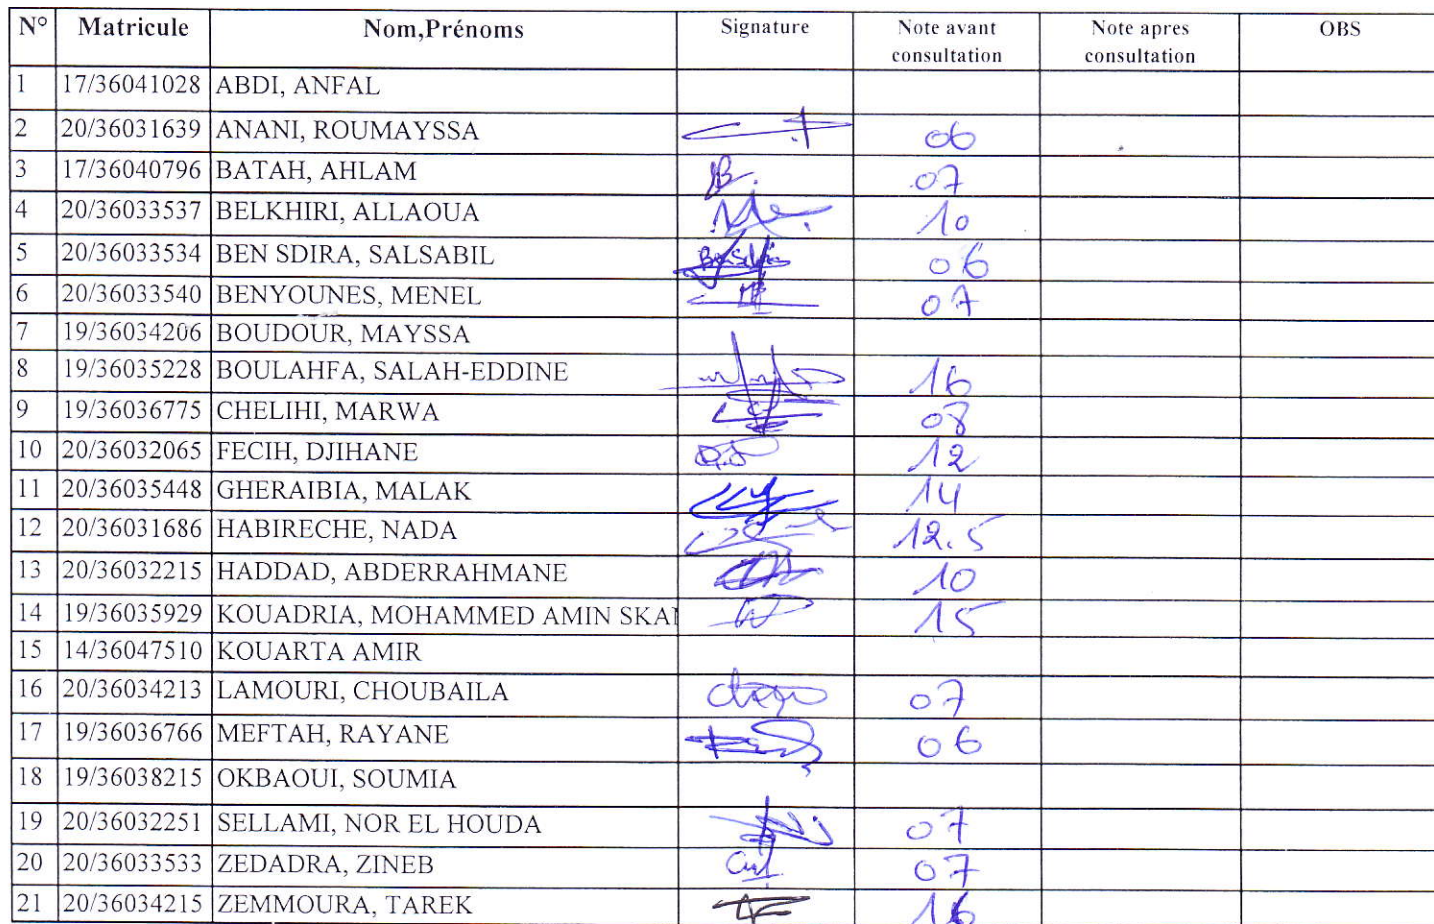 N° Matricule Nom,Prénoms Signature Note avant consultation Note apres consultation OBS
1 17/36041028 ABDI, ANFAL
2 20/36031639 ANANI, ROUMAYSSA 06
3 17/36040796 BATAH, AHLAM 07
4 20/36033537 BELKHIRI, ALLAOUA 10
5 20/36033534 BEN SDIRA, SALSABIL 06
6 20/36033540 BENYOUNES, MENEL 07
7 19/36034206 BOUDOUR, MAYSSA
8 19/36035228 BOULAHFA, SALAH-EDDINE 16
9 19/36036775 CHELIHI, MARWA 08
10 20/36032065 FECIH, DJIHANE 12
11 20/36035448 GHERAIBIA, MALAK 14
12 20/36031686 HABIRECHE, NADA 12.5
13 20/36032215 HADDAD, ABDERRAHMANE 10
14 19/36035929 KOUADRIA, MOHAMMED AMIN SKAN 15
15 14/36047510 KOUARTA AMIR
16 20/36034213 LAMOURI, CHOUBAILA 07
17 19/36036766 MEFTAH, RAYANE 06
18 19/36038215 OKBAOUI, SOUMIA
19 20/36032251 SELLAMI, NOR EL HOUDA 07
20 20/36033533 ZEDADRA, ZINEB 07
21 20/36034215 ZEMMOURA, TAREK 16